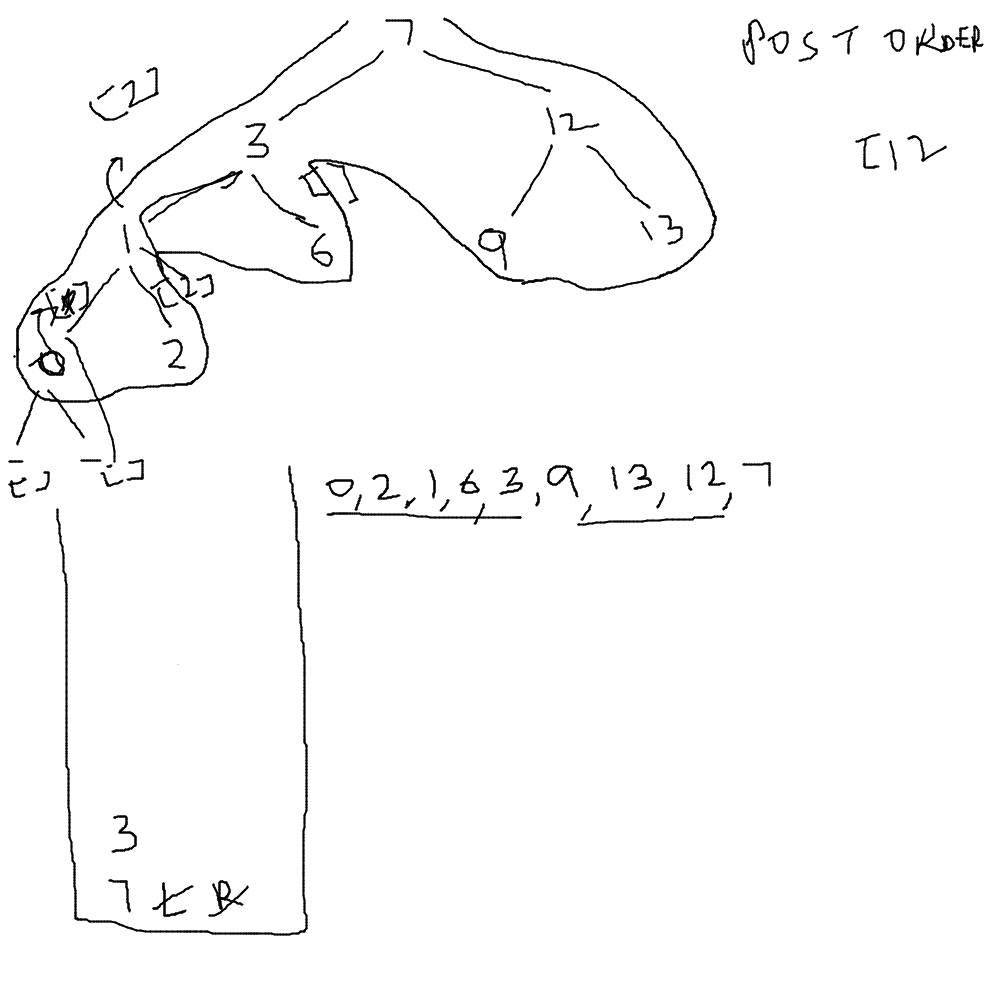 7
POST ORDER
[2]
3
12
[12
[]
1
6
9
13
[2]
0
2
[]
[]
0,2,1,6,3,9,13,12,7
3
7 L R